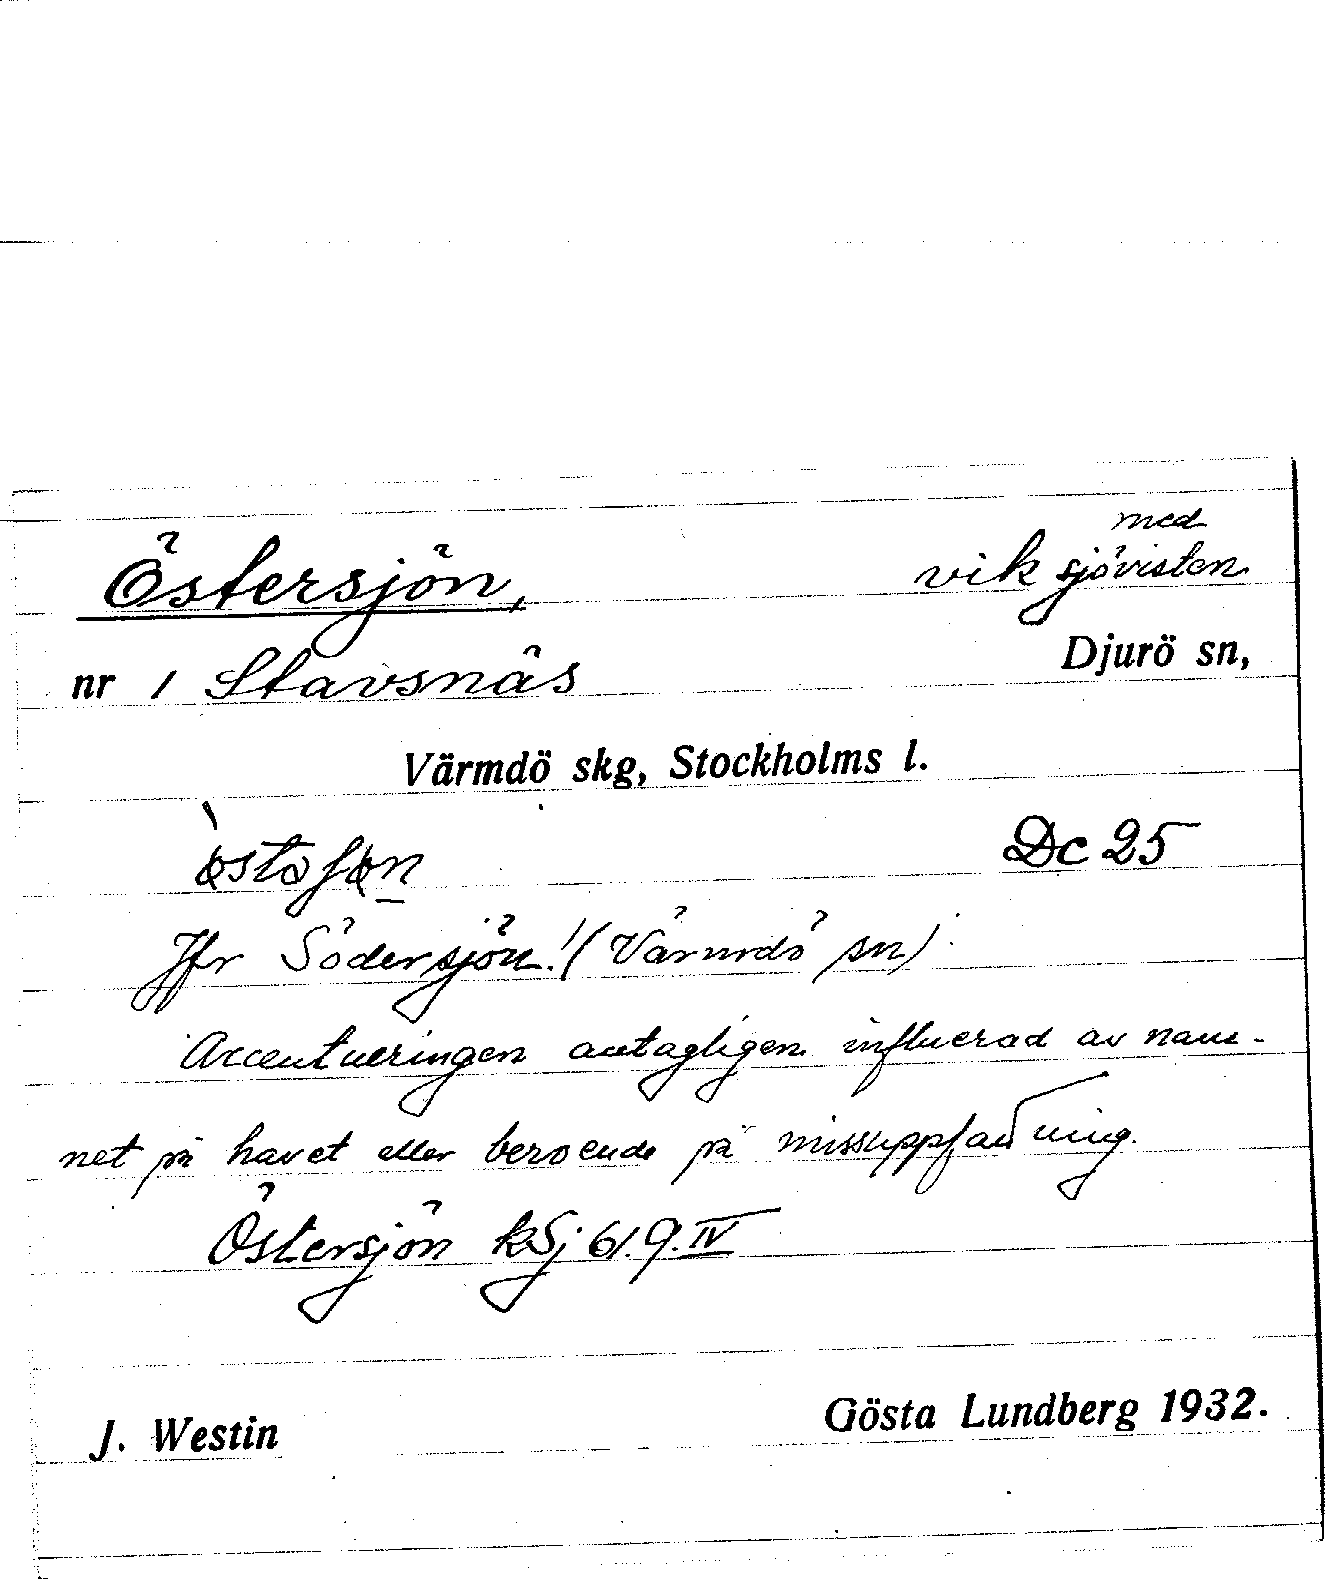 Östersjön,
med
vik sjövisten.
nr 1 Stavsnäs
Djurö sn,
Värmdö skg, Stockholms l.
Dc 25
Jfr Södersjön! (Värmdö sn)
Accentueringen antagligen influerad av nam-
net på havet eller beroende på missuppfattning.
Östersjön kSj 61. 9. IV
J. Westin
Gösta Lundberg 1932.